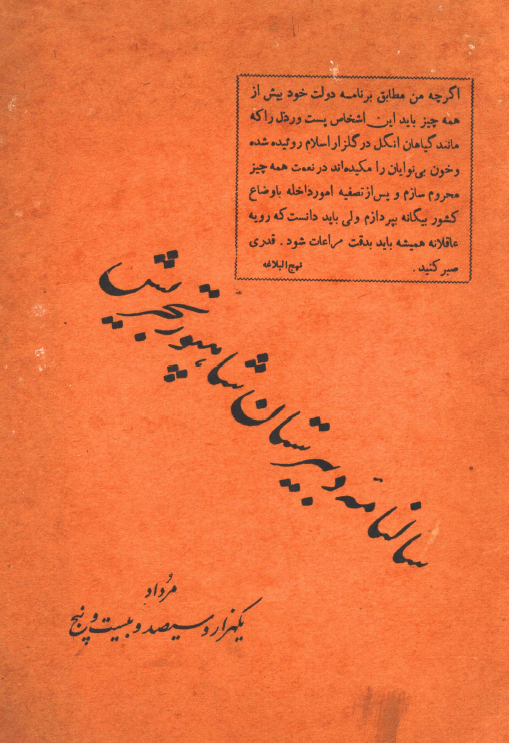 اگرچه من مطابق برنامه دولت خود بیش از
همه چیز باید این اشخاص پست و رذل را که
مانند گیاهان انگل در گلزار اسلام روئیده شده
و خون بی‌نوایان را مکیده‌اند در نعمت همه چیز
محروم سازم و پس از تصفیه امور داخله باوضاع
کشور بیگانه بپردازم ولی باید دانست که رویه
عاقلانه همیشه باید بدقت مراعات شود . قدری
صبر کنید . نهج البلاغه
سالنامه دبیرستان شاهپور تجریش
مرداد
یکهزار و سیصد و بیست و پنج